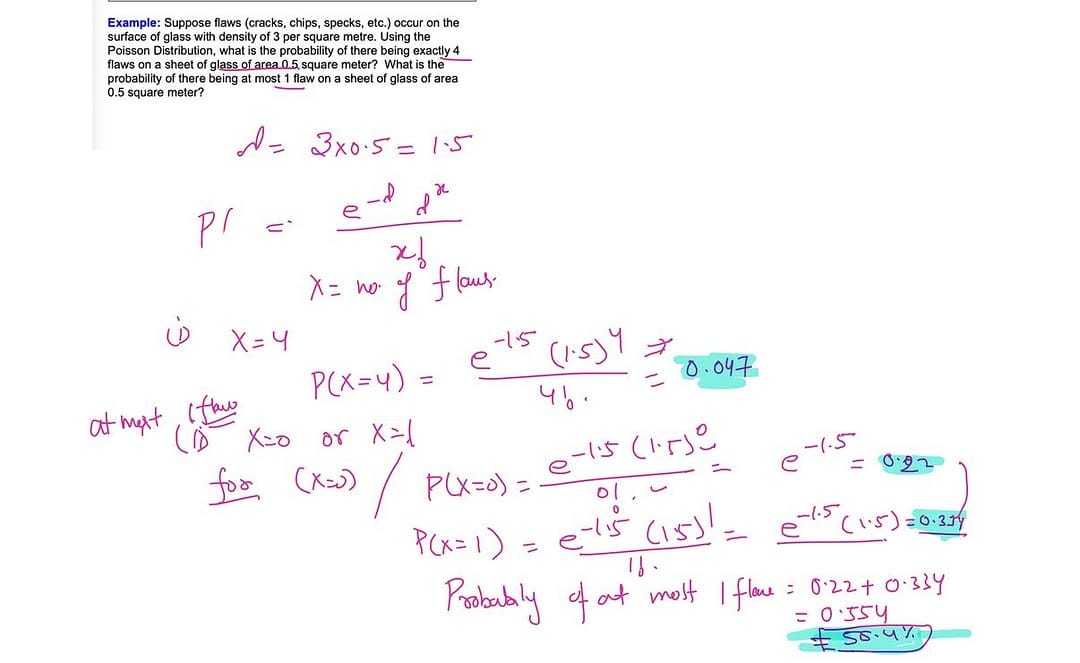 Example: Suppose flaws (cracks, chips, specks, etc.) occur on the
surface of glass with density of 3 per square metre. Using the
Poisson Distribution, what is the probability of there being exactly 4
flaws on a sheet of glass of area 0.5 square meter? What is the
probability of there being at most 1 flaw on a sheet of glass of area
0.5 square meter?
λ = 3x0.5 = 1.5
Pr = e^-λ λ^x / x!
X = no. of flaws.
i) X=4
P(X=4) = e^-1.5 (1.5)^4 / 4! = 0.047
at most 1 flaw
(ii) X=0 or X=1
for (X=0) / P(X=0) = e^-1.5 (1.5)^0 / 0! = e^-1.5 = 0.22
P(X=1) = e^-1.5 (1.5)^1 / 1! = e^-1.5 (1.5) = 0.334
Probabaly of at most 1 flaw = 0.22 + 0.334
= 0.554
= 55.4%